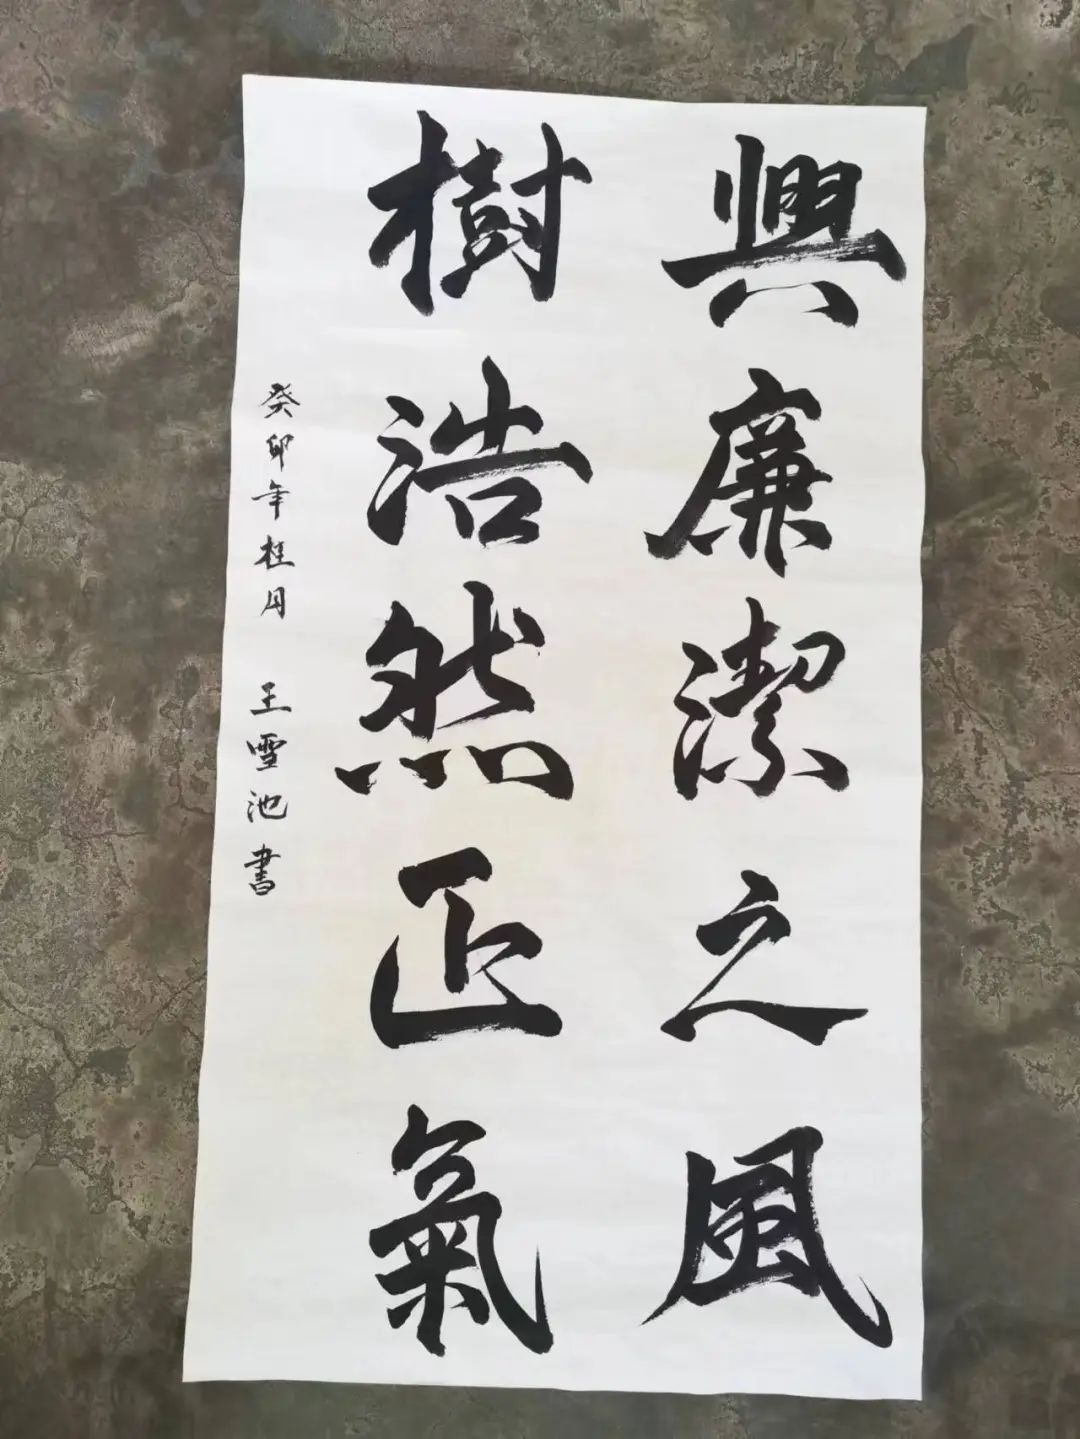 興廉潔之風
樹浩然正氣
癸卯年桂月 王雪池書